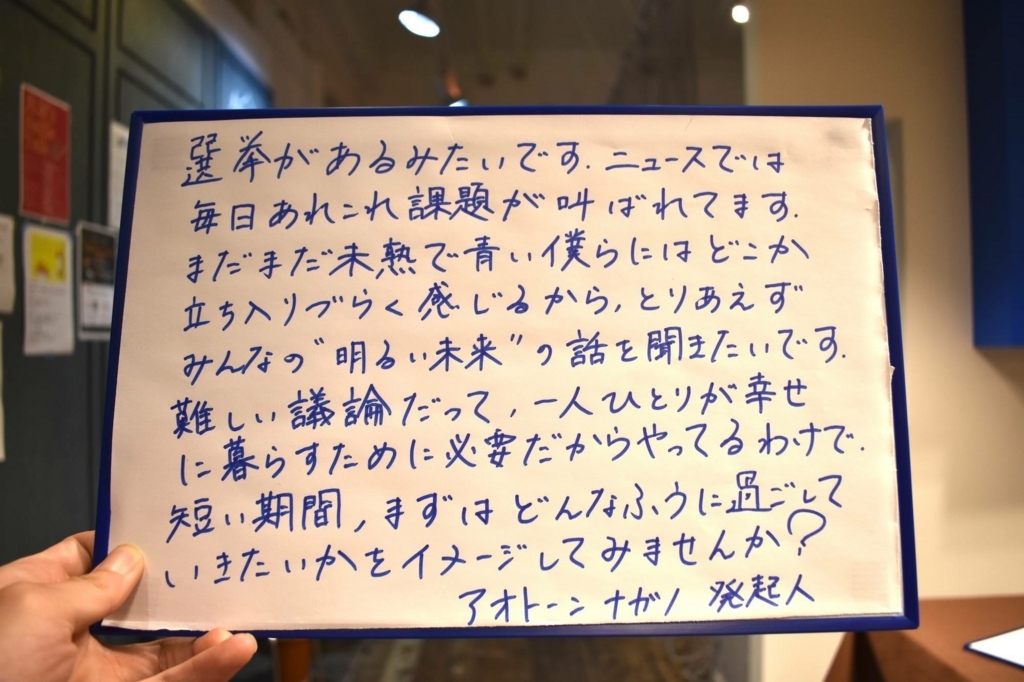 選挙があるみたいです.ニュースでは
毎日あれこれ課題が叫ばれてます.
まだまだ未熟で青い僕らにはどこか
立ち入りづらく感じるから,とりあえず
みんなの"明るい未来"の話を聞きたいです.
難しい議論だって,一人ひとりが幸せ
に暮らすために必要だからやってるわけで.
短い期間,まずはどんなふうに過ごして
いきたいかをイメージしてみませんか?
アオトーンナガノ 発起人